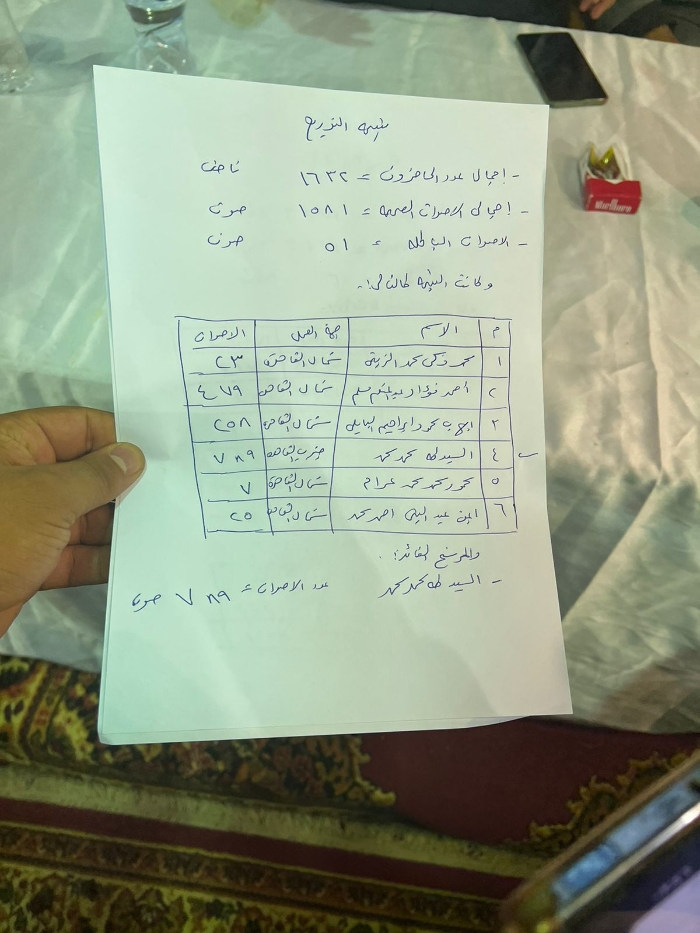 نتيجة التوزيع
- إجمالي عدد الحاضرون = ١٦٣٢ ناخب
- إجمالي الاصوات الصحيحة = ١٥٨١ صوت
- الاصوات الباطلة = ٥١ صوت
وكانت النتيجة كالتالى :-
م الاسم جهة العمل الاصوات
١ محمد زكى محمد شمال القاهرة ٢٣
٢ أحمد فؤاد عبد المنعم شمال القاهرة ٤٧٩
٣ ايهاب محمود ابراهيم شمال القاهرة ٢٥٨
٤ السيد طه محمد محمد جنوب القاهرة ٧٨٩
٥ محمود محمد محمد عزام شمال القاهرة ٧
٦ ايمن عبد النبى احمد محمد شمال القاهرة ٢٥
والمرشح الفائز :.
- السيد طه محمد محمد عدد الاصوات = ٧٨٩ صوت
Marlboro